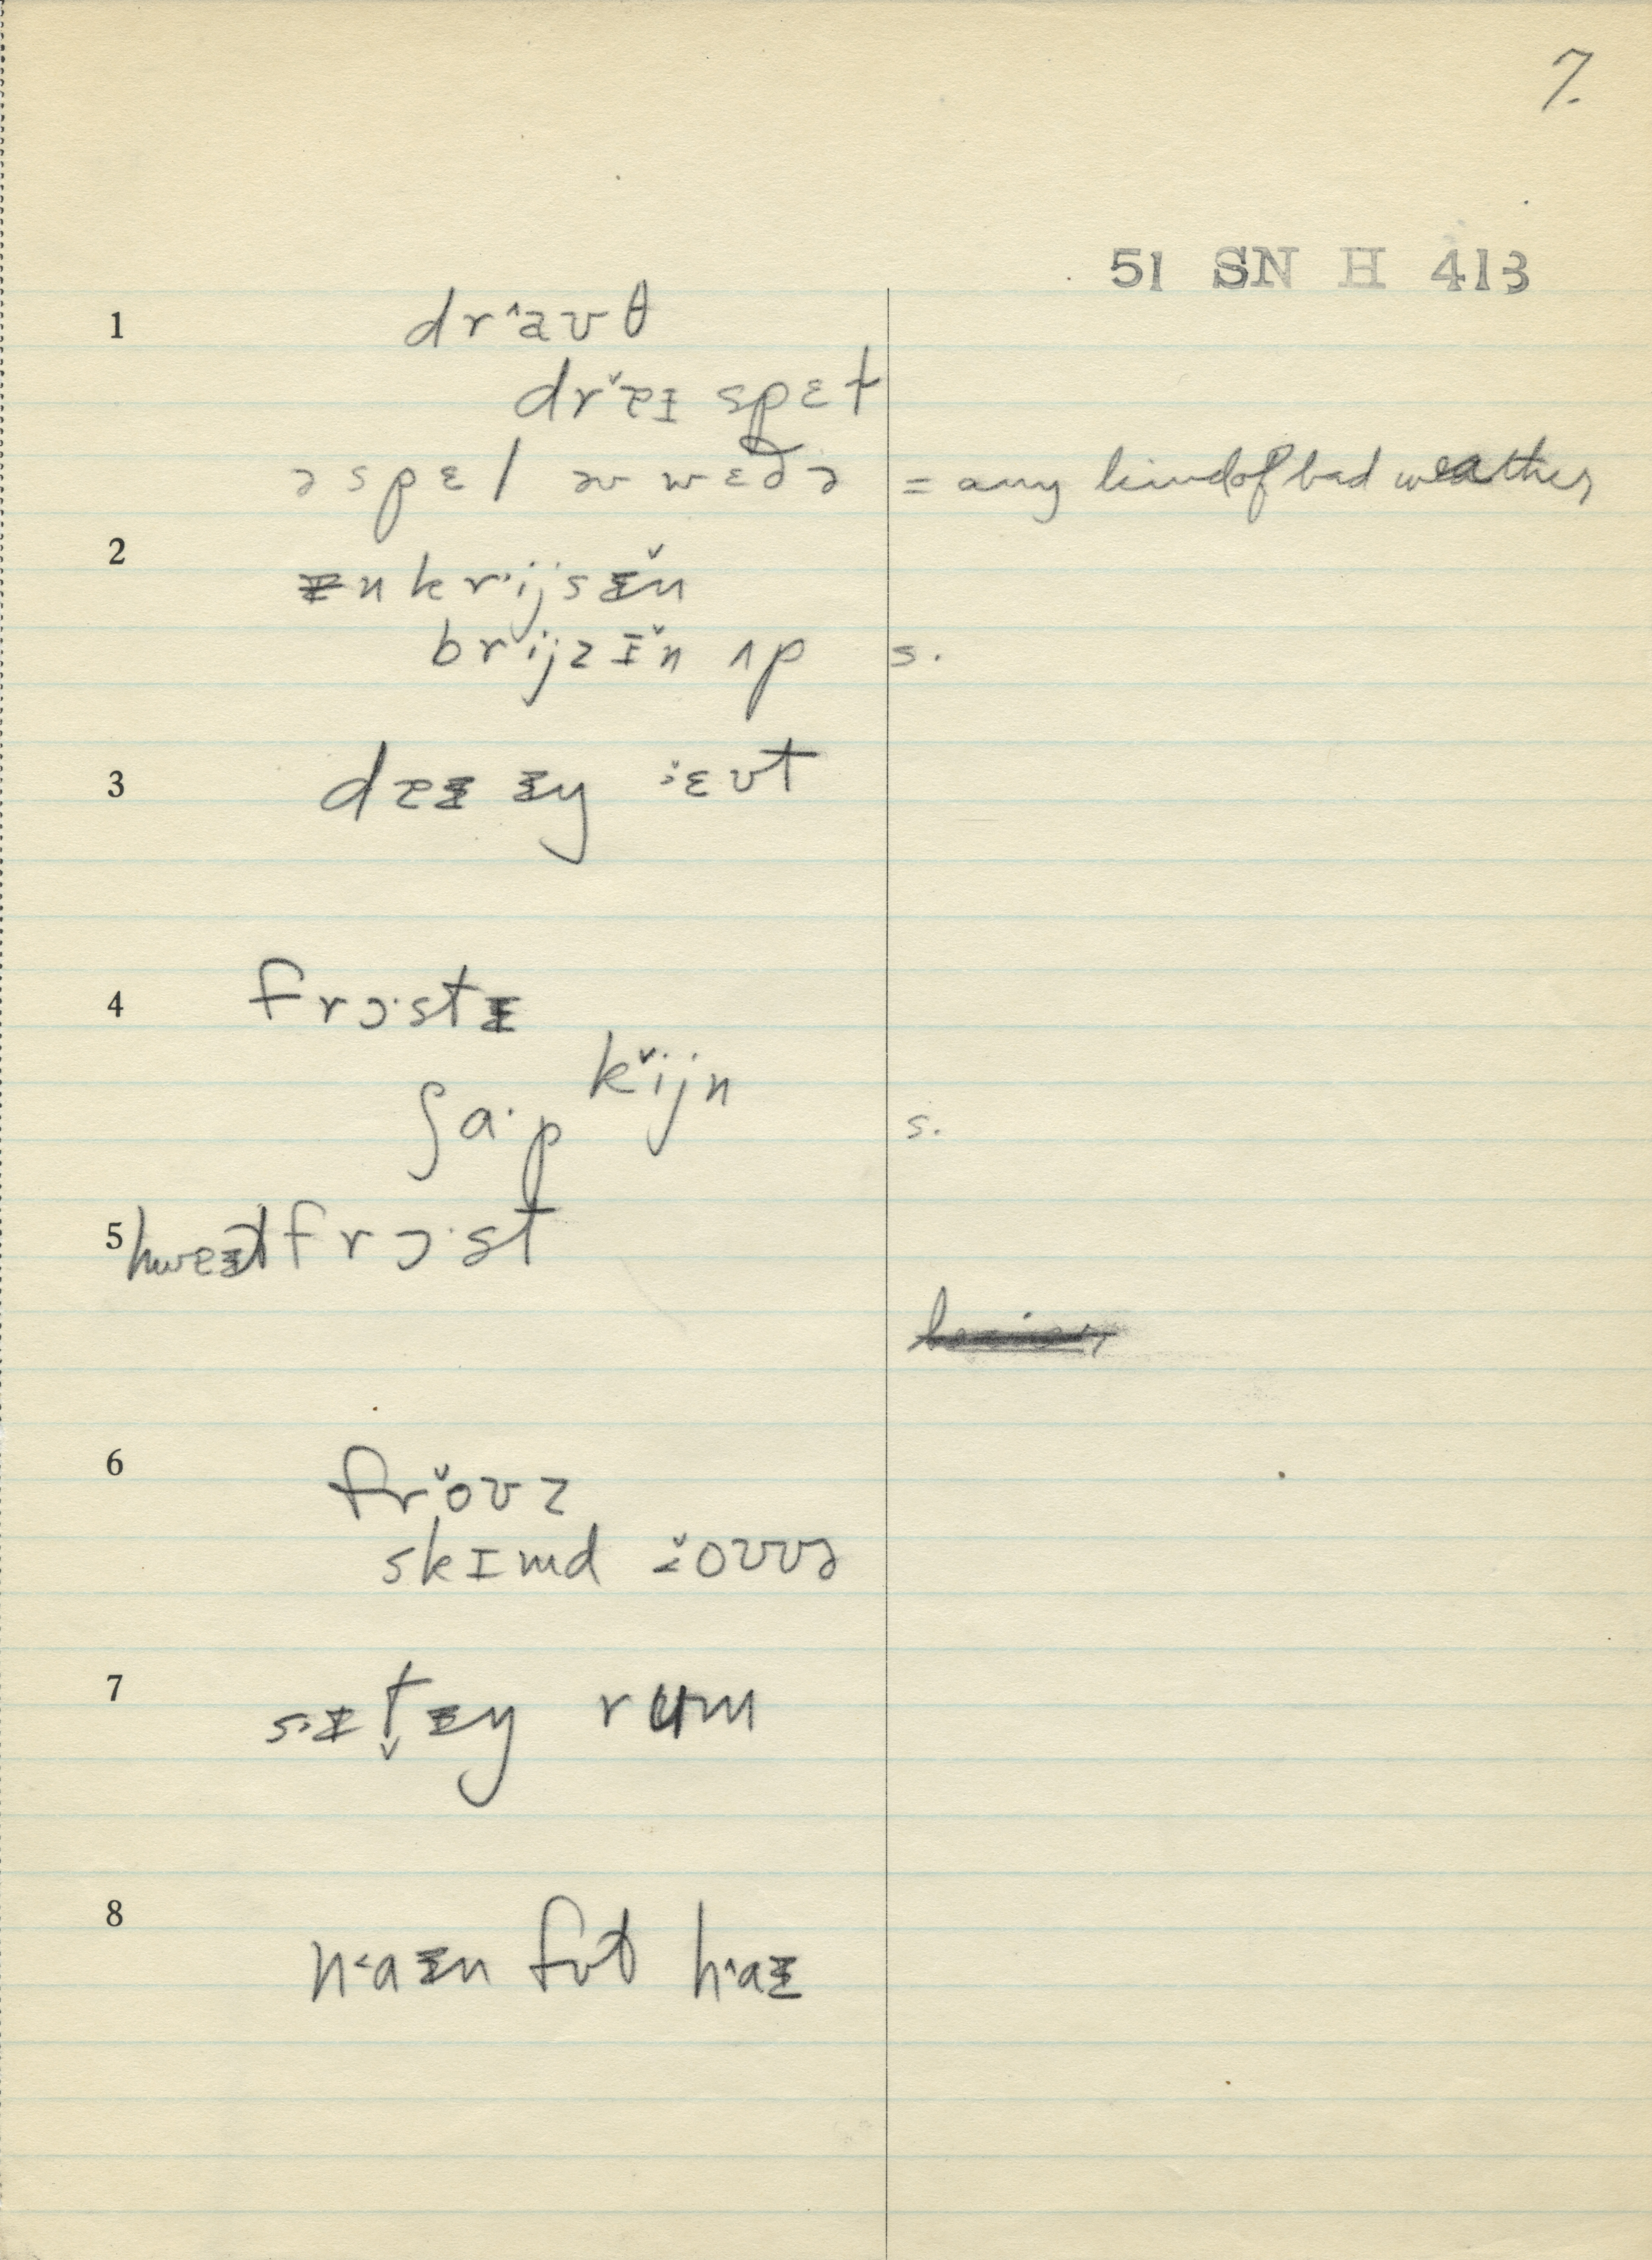 7.
51 SN H 413
1
drˆaʊθ
drˇɐɪ spɛt
ə spɛl əv wɛðə = any kind of bad weather
2
ɪnkr·ijsɪ̌n
brijzɪ̌n ʌp s.
3
dɐɪɪŋ ɛʊt
4
frɔ·stɪ
ʃa·p kˇijn s.
5
hwɐɪtfrɔ·st
6
frˇoʊz
skɪmd ˇoʊvə
7
s·ɪt̬ɪŋ rʉm
8
n·aɪn fʊt hˆaɪ